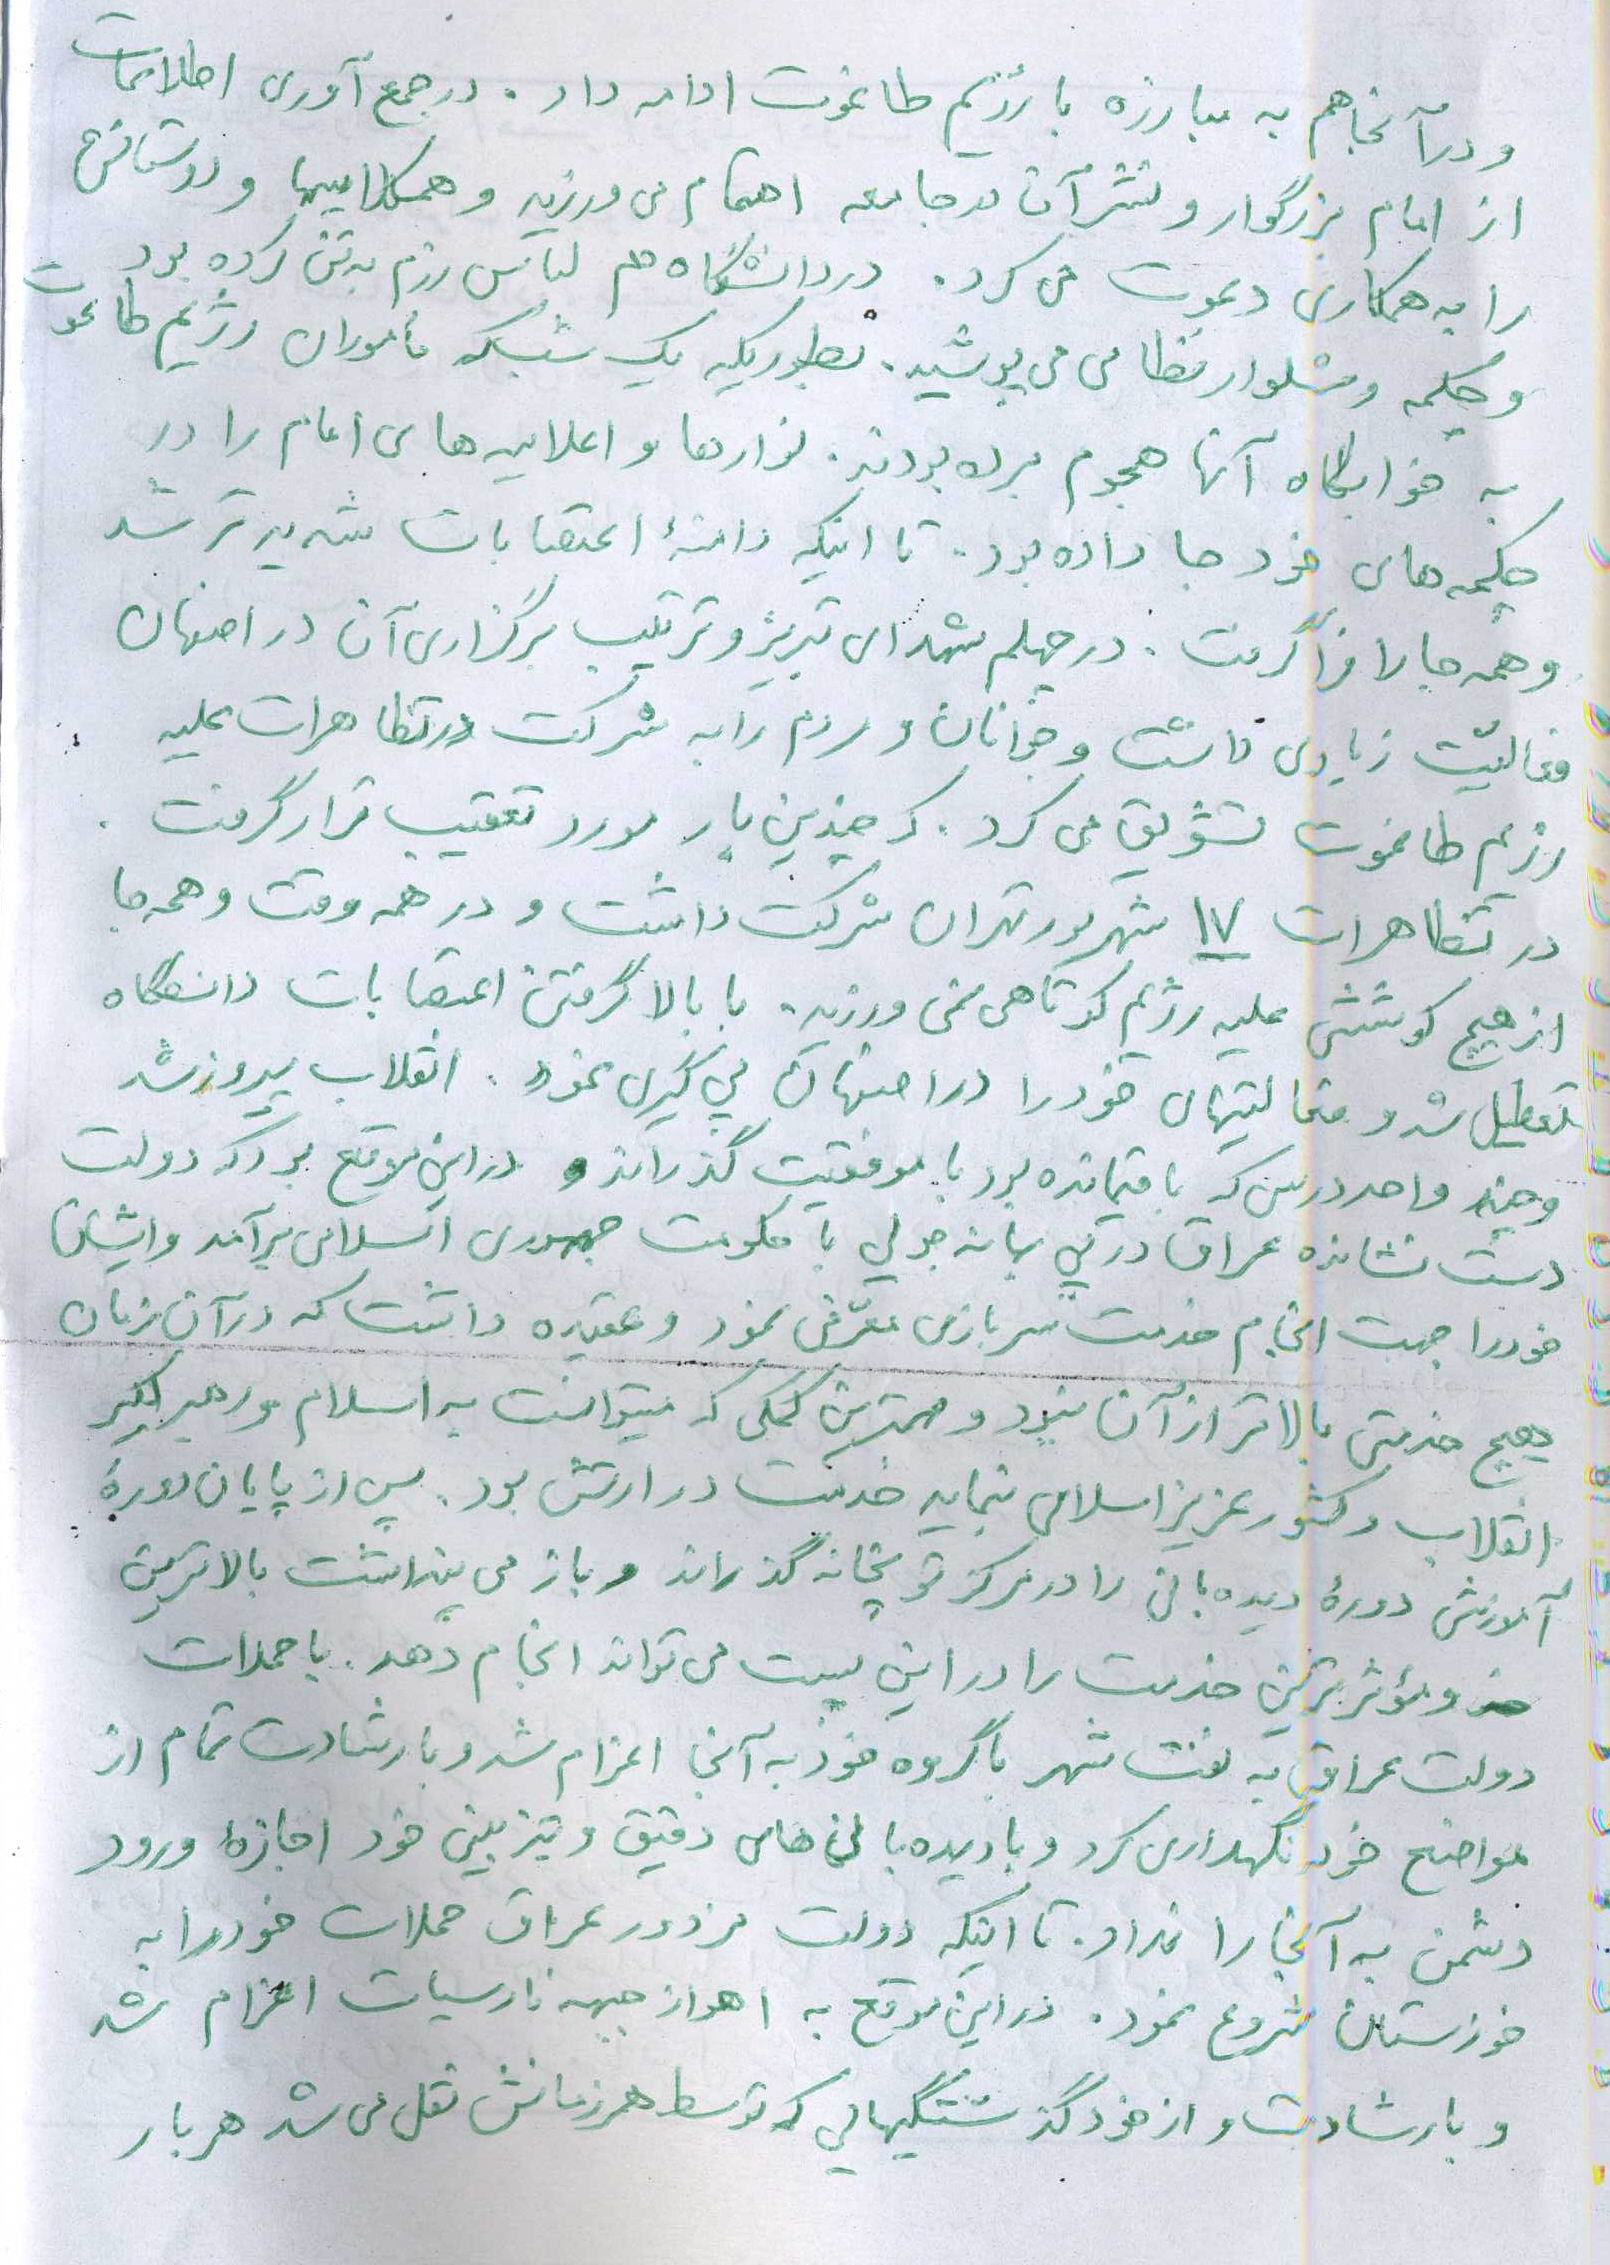 و در آنجا هم به مبارزه با رژیم طاغوت ادامه داد . در جمع آوری اطلاعات
از امام بزرگوار و نشر آن در جامعه اهتمام می ورزید و همکلاسیها و دوستانش
را به همکاری دعوت می کرد . در دانشگاه هم لباس رزم به تن کرده بود
و چکمه و شلوار نظامی می پوشید . بطوریکه یک شب که مأموران رژیم طاغوت
به خوابگاه آنها هجوم برده بودند . نوارها و اعلامیه های امام را در
چکمه های خود جا داده بود . تا اینکه دامنهٔ اعتصابات شدیدتر شد
و همه جا را فرا گرفت . در چهلم شهدای تبریز و ترتیب برگزاری آن در اصفهان
فعالیّت زیادی داشت و جوانان و مردم را به شرکت در تظاهرات علیه
رژیم طاغوت تشویق می کرد . که چندین بار مورد تعقیب قرار گرفت .
در تظاهرات ۱۷ شهریور تهران شرکت داشت و در همه وقت و همه جا
از هیچ کوششی علیه رژیم کوتاهی نمی ورزید . با بالا گرفتن اعتصابات دانشگاه
تعطیل شد و فعالیتهای خود را در اصفهان پی گیری نمود . انقلاب پیروز شد
و چند واحد درسی که باقیمانده بود با موفقیت گذراند و در این موقع بود که دولت
دست نشانده عراق در پی بهانه جوئی با حکومت جمهوری اسلامی برآمد و ایشان
خود را جهت انجام خدمت سربازی معرّفی نمود و عقیده داشت که در آن زمان
هیچ خدمتی بالاتر از آن نبود و مهمترین کمکی که میتوانست به اسلام و رهبر کبیر
انقلاب و کشور عزیز اسلامی بنماید خدمت در ارتش بود . پس از پایان دورهٔ
آموزش دورهٔ دیده بانی را در مرکز توپخانه گذراند و باز می پنداشت بالاترین
و مؤثرترین خدمت را در این پست می تواند انجام دهد . با حملات
دولت عراق به نفت شهر با گروه خود به آنجا اعزام شد و با رشادت تمام از
مواضع خود نگهداری کرد و با دیده بانی های دقیق و تیزبینی خود اجازهٔ ورود
دشمن به آنجا را نداد . تا اینکه دولت مزدور عراق حملات خود را به
خوزستان شروع نمود . در این موقع به اهواز جبهه فارسیات اعزام شد
و با رشادت و از خود گذشتگیهایی که توسط همرزمانش نقل می شد هر بار